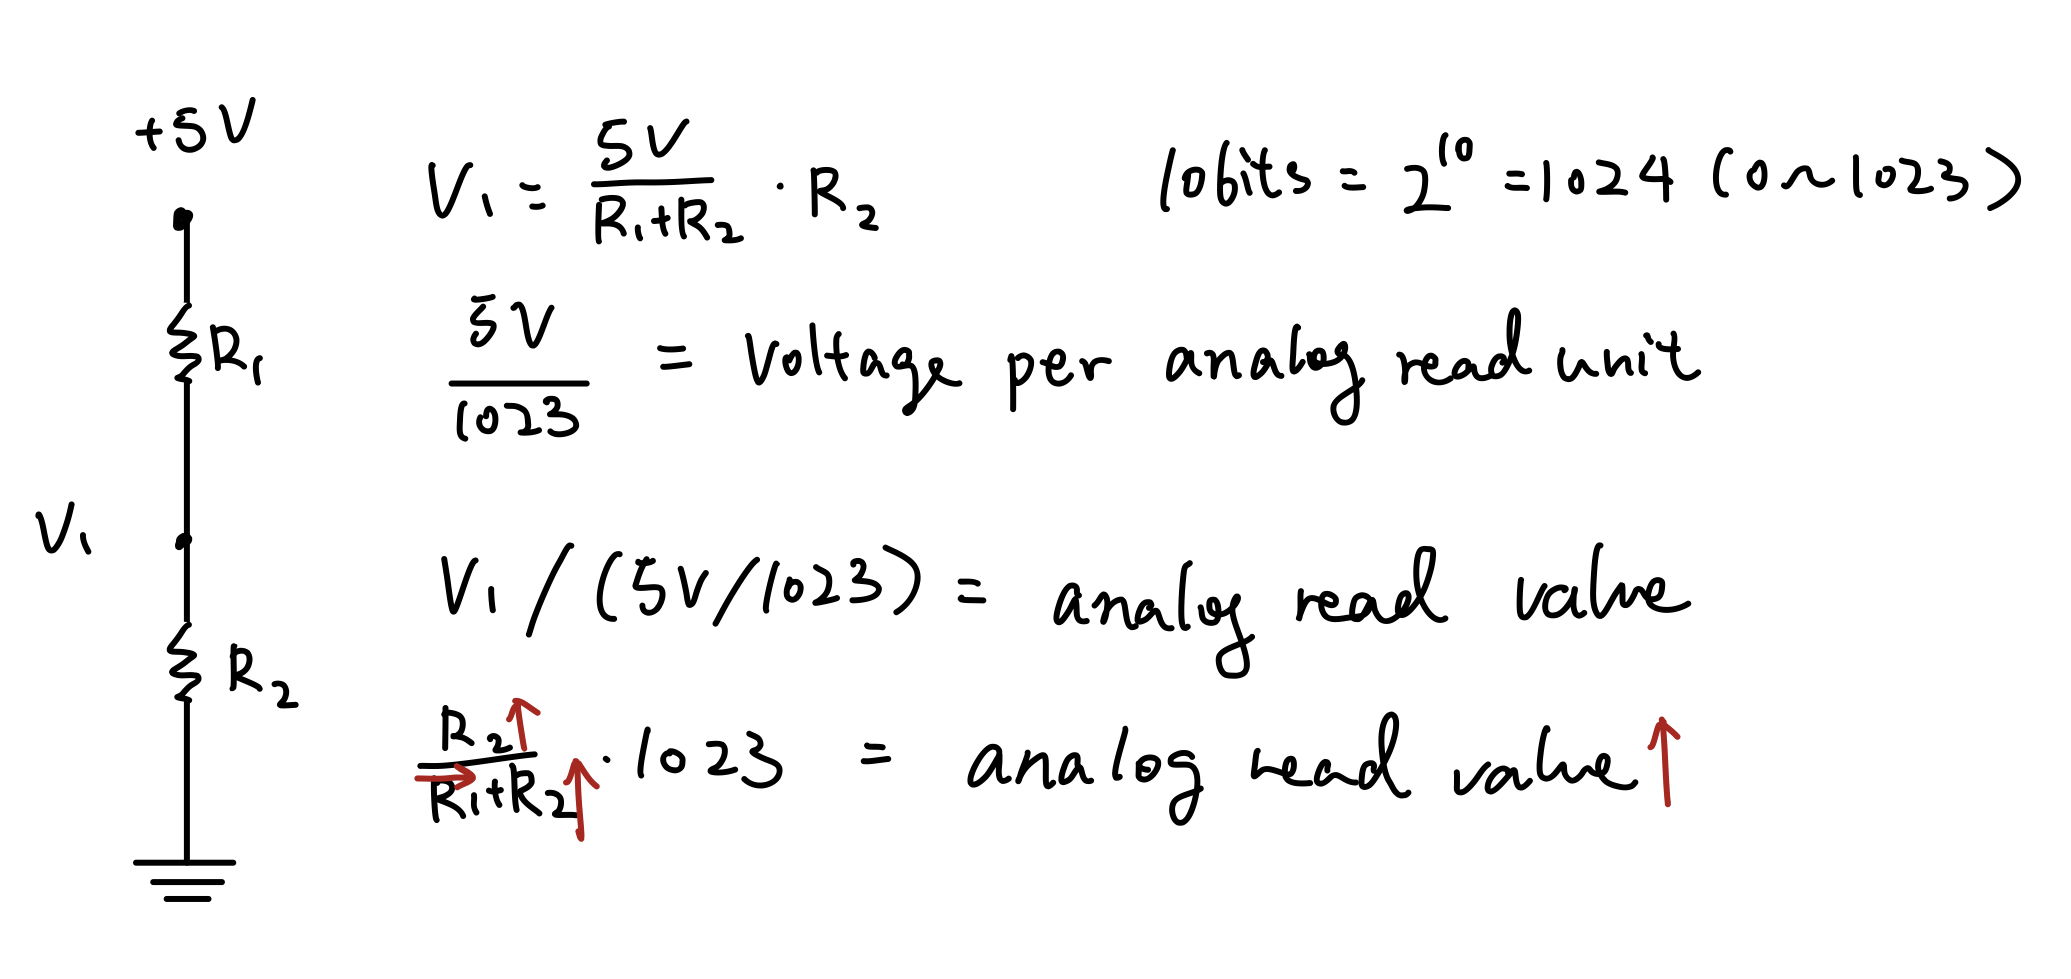 +5V
V₁ = 5V / (R₁+R₂) · R₂
10bits = 2¹⁰ = 1024 (0~1023)
R₁
5V / 1023 = Voltage per analog read unit
V₁
V₁ / (5V/1023) = analog read value
R₂
R₂↑ / (R₁→+R₂↑) · 1023 = analog read value↑